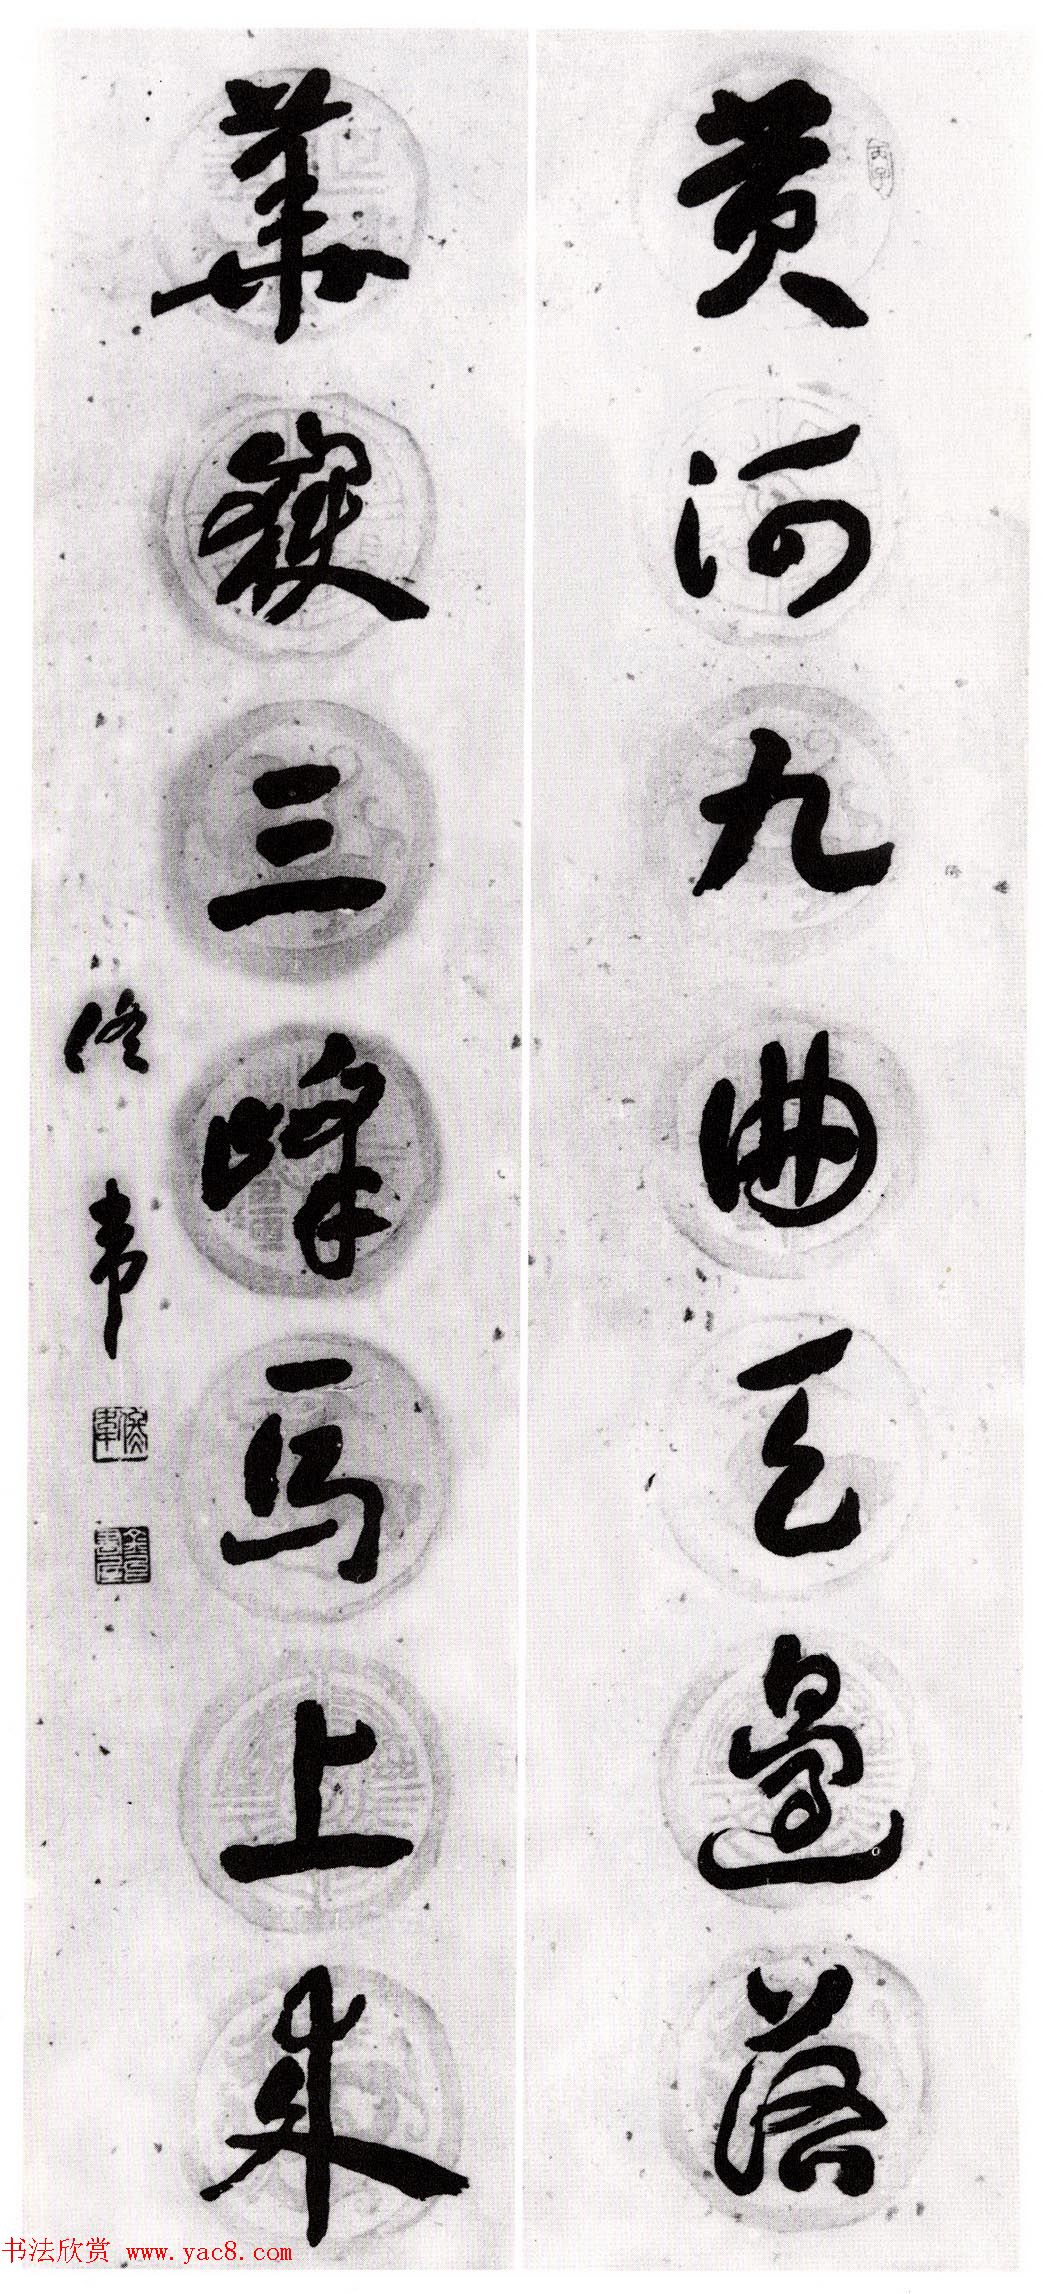 黄河九曲天邊落
華嶽三峰馬上来
佟韦
书法欣赏 www.yac8.com